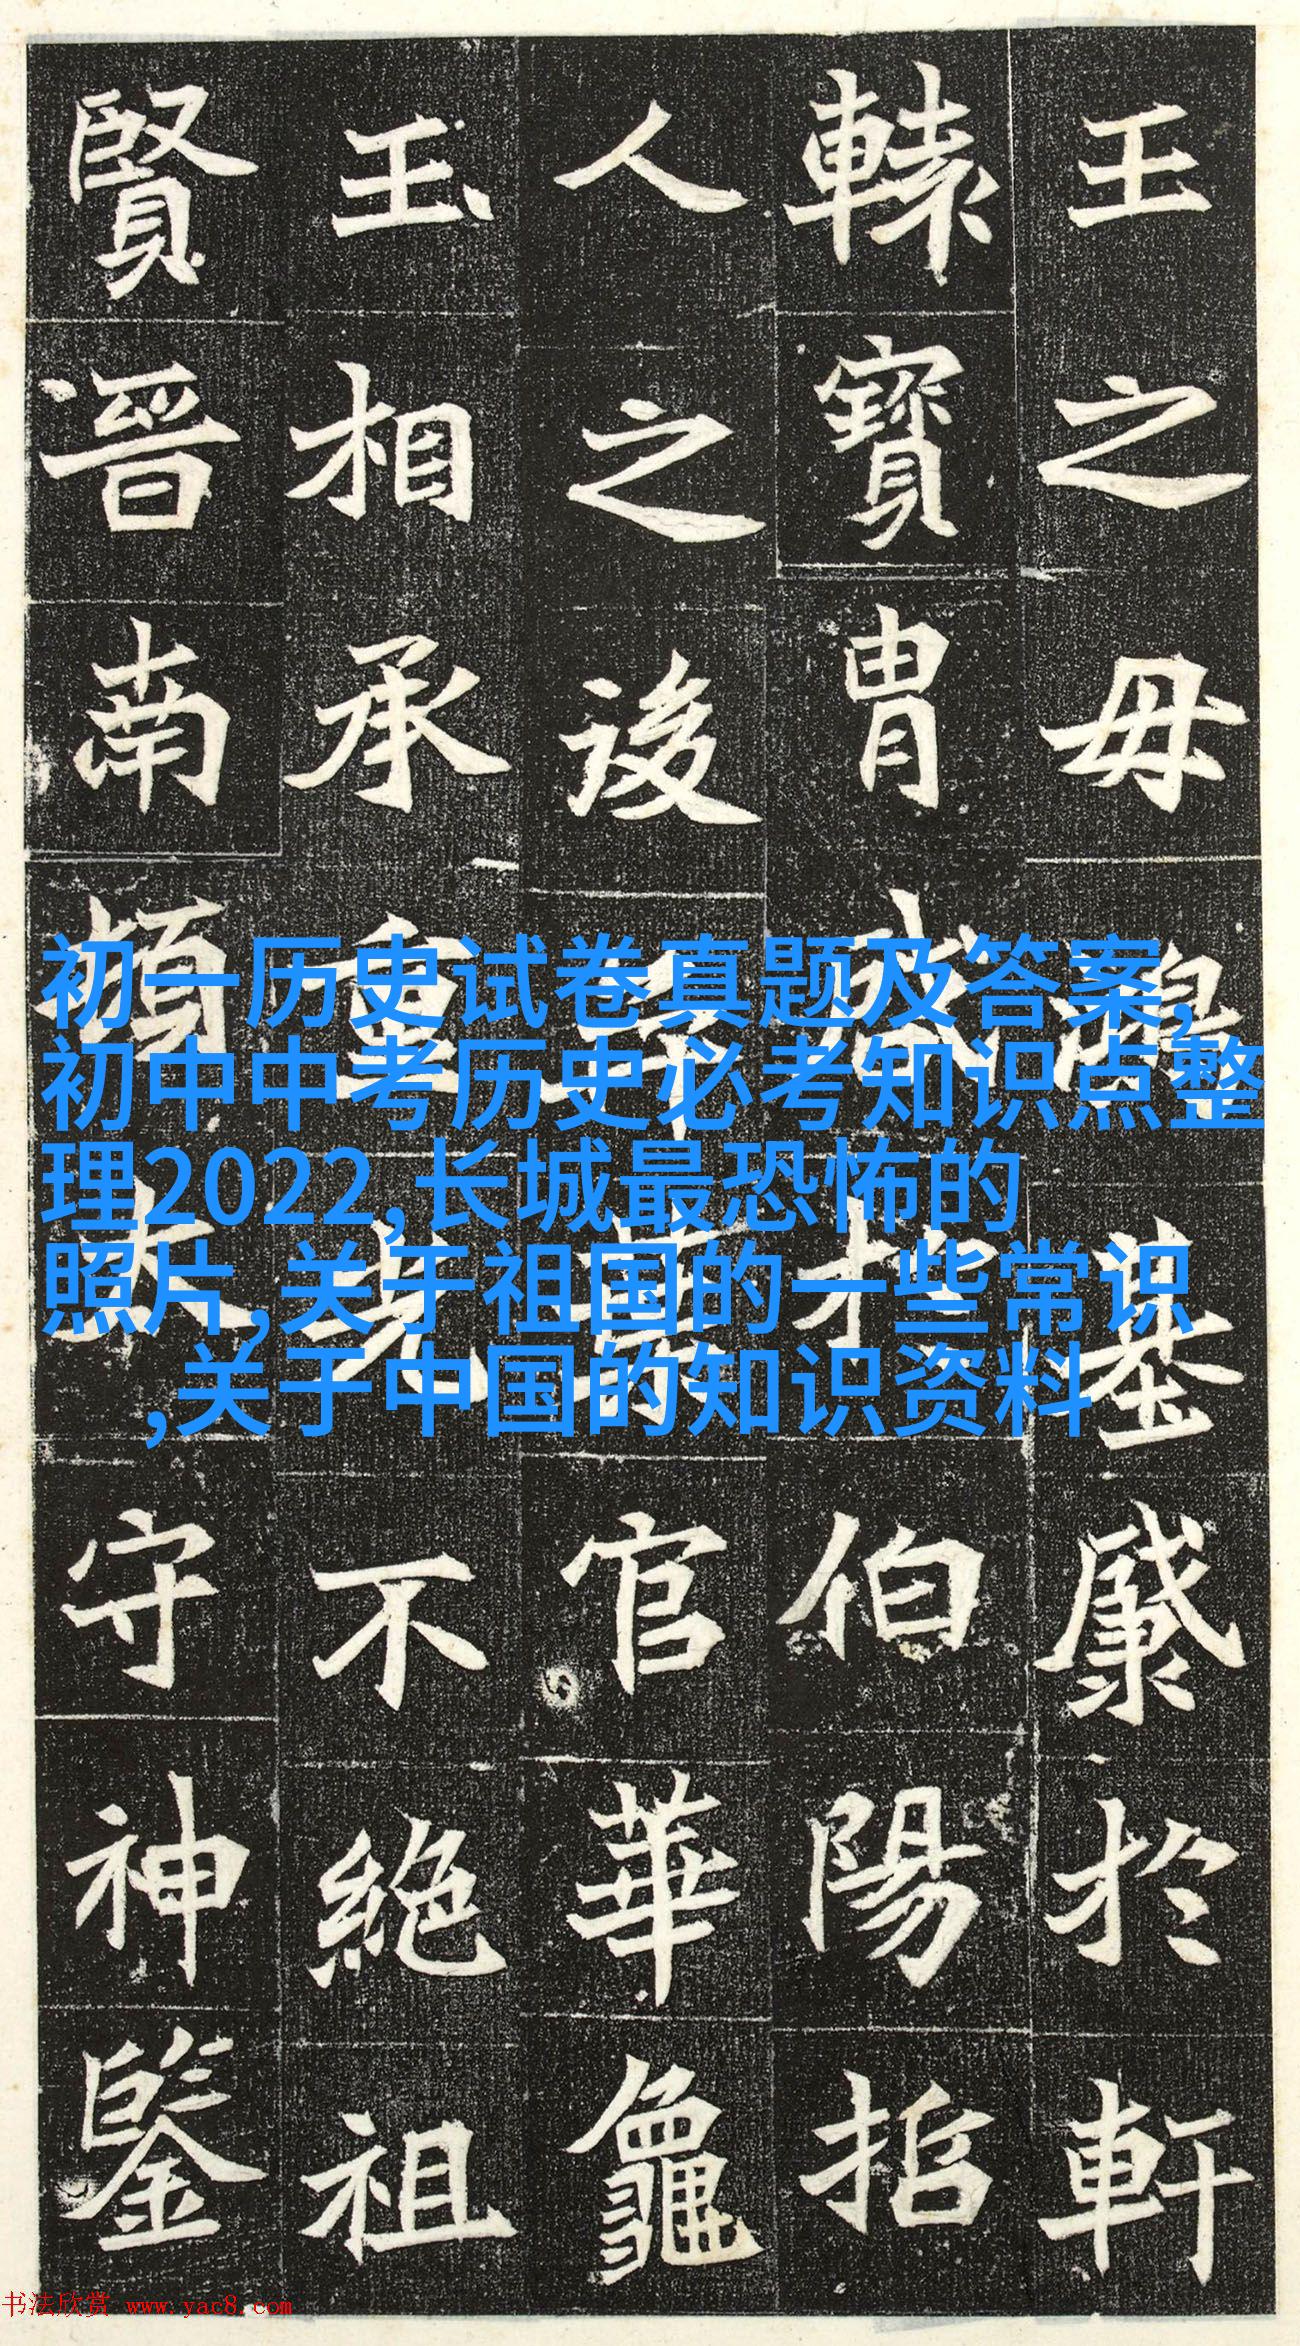 王之毋基於軒
轅寶胄於伯陽招
人之後官華龜
玉相承重光不絕祖
賢晉南頓太守神鑒
初一历史试卷真题及答案,
初中中考历史必考知识点整
理2022,长城最恐怖的
照片,关于祖国的一些常识
,关于中国的知识资料
书法欣赏 www.yac8.com